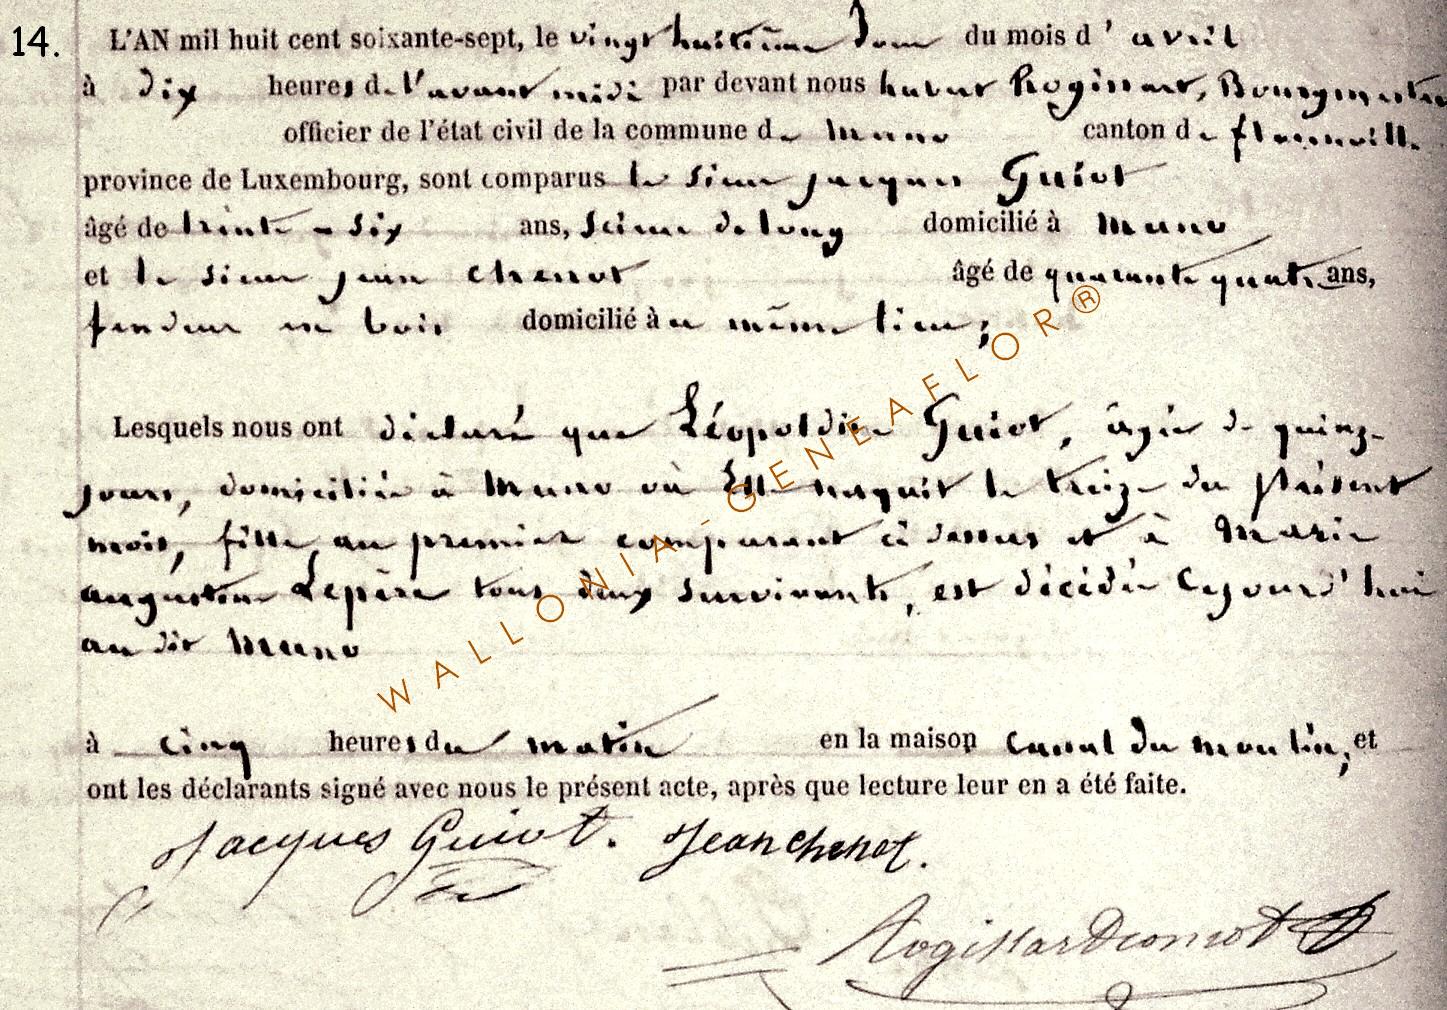 14. L'AN mil huit cent soixante-sept, le vingt huitième Jour du mois d' avril
à dix heures de l'avant midi par devant nous hubert Rogissart, Bourgmestre
officier de l'état civil de la commune de Muno canton de florenville
province de Luxembourg, sont comparus le sieur jacques Guiot
âgé de trente-six ans, Scieur de long domicilié à Muno
et le sieur jean chenot âgé de quarante quatre ans,
fendeur en bois domicilié à ce même lieu;
Lesquels nous ont déclaré que Léopoldine Guiot, âgée de quinze
jours, domiciliée à Muno où Elle naquit le treize du présent
mois, fille au premier comparant ci dessus et à Marie
augustine Lepère tous deux survivants, est décédée cejourd'hui
au dit Muno
à cinq heures du matin en la maison canal du moulin; et
ont les déclarants signé avec nous le présent acte, après que lecture leur en a été faite.
Jacques Guiot. Jean Chenot.
WALLONIA-GENEAFLOR®